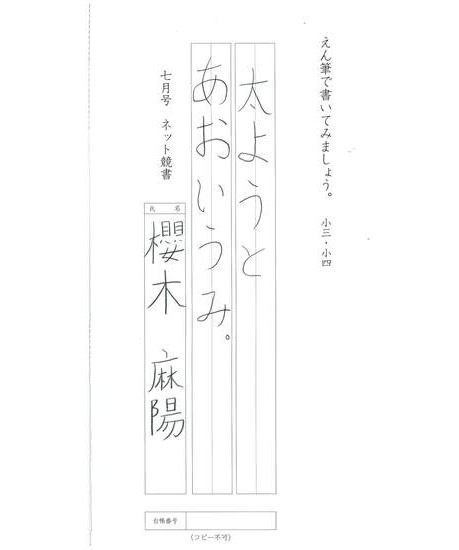 えん筆で書いてみましょう。 小三・小四
太ようと
あおいうみ。
七月号 ネット競書
氏 名
櫻木 麻陽
台帳番号
(コピー不可)